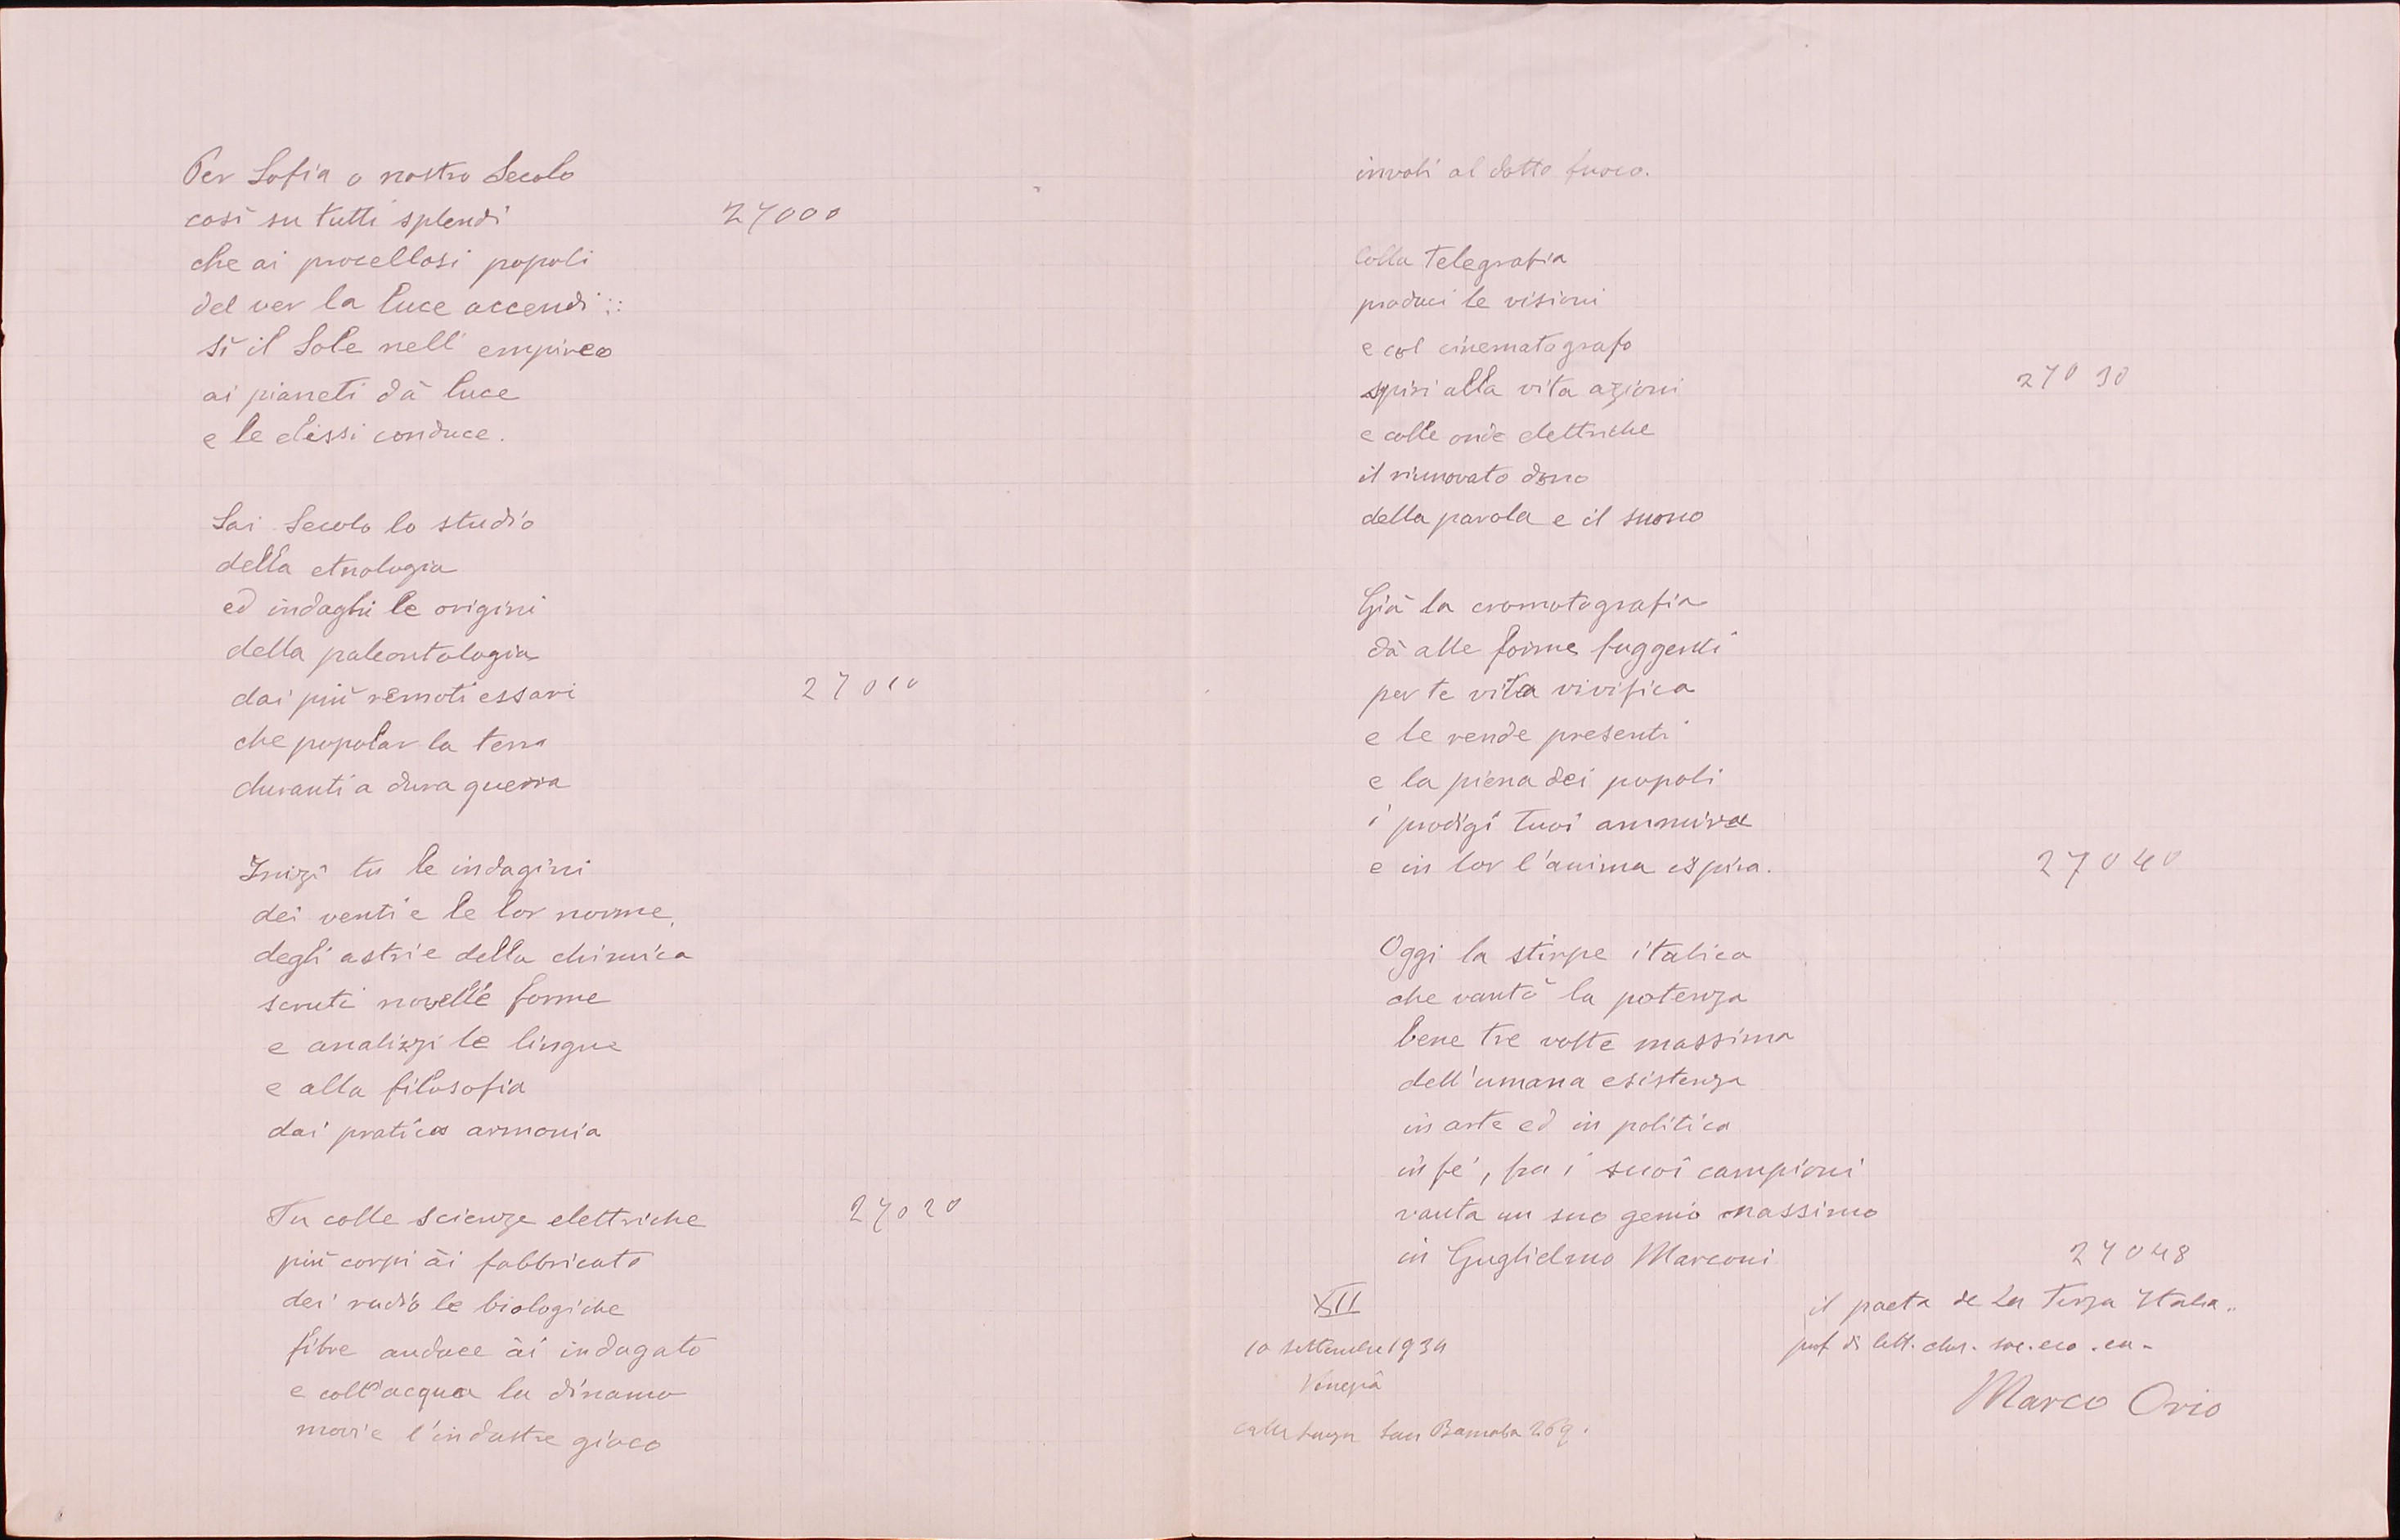 Per Sofia o nostro Secolo
così su tutti splendi 27000
che ai procellosi popoli
del ver la luce accendi :
sì il Sole nell' empireo
ai pianeti dà luce
e le elissi conduce.
Sai Secolo lo studio
della etnologia
ed indaghi le origini
della paleontologia
dai più remoti essari 27010
che popolar la terra
duranti a dura guerra
Inizi tu le indagini
dei venti e le lor norme,
degli astri e della chimica
scruti novelle forme
e analizzi le lingue
e alla filosofia
dai pratica armonia
Tu colle scienze elettriche 27020
più corpi ài fabbricato
dei radio le biologiche
fibre audace ài indagato
e coll'acqua la dinamo
movi e l'industre gioco
involi al dotto fuoco.
Colla telegrafia
produci le visioni
e col cinematografo
spiri alla vita azioni 27030
e colle onde elettriche
il rinnovato dono
della parola e il suono
Già la cromotografia
dà alle forme fuggenti
per te vita vivifica
e le rende presenti
e la piena dei popoli
i prodigi tuoi ammira
e in lor l'anima ispira. 27040
Oggi la stirpe italica
che vantò la potenza
bene tre volte massima
dell'umana esistenza
in arte ed in politica
in fe', fra i suoi campioni
vanta un suo genio massimo
in Guglielmo Marconi 27048
XII
il poeta de la Terza Italia..
10 settembre 1934
prof di lett. clas. soc. eco.
Venezia
Marco Orio
calle lunga San Barnaba 269.